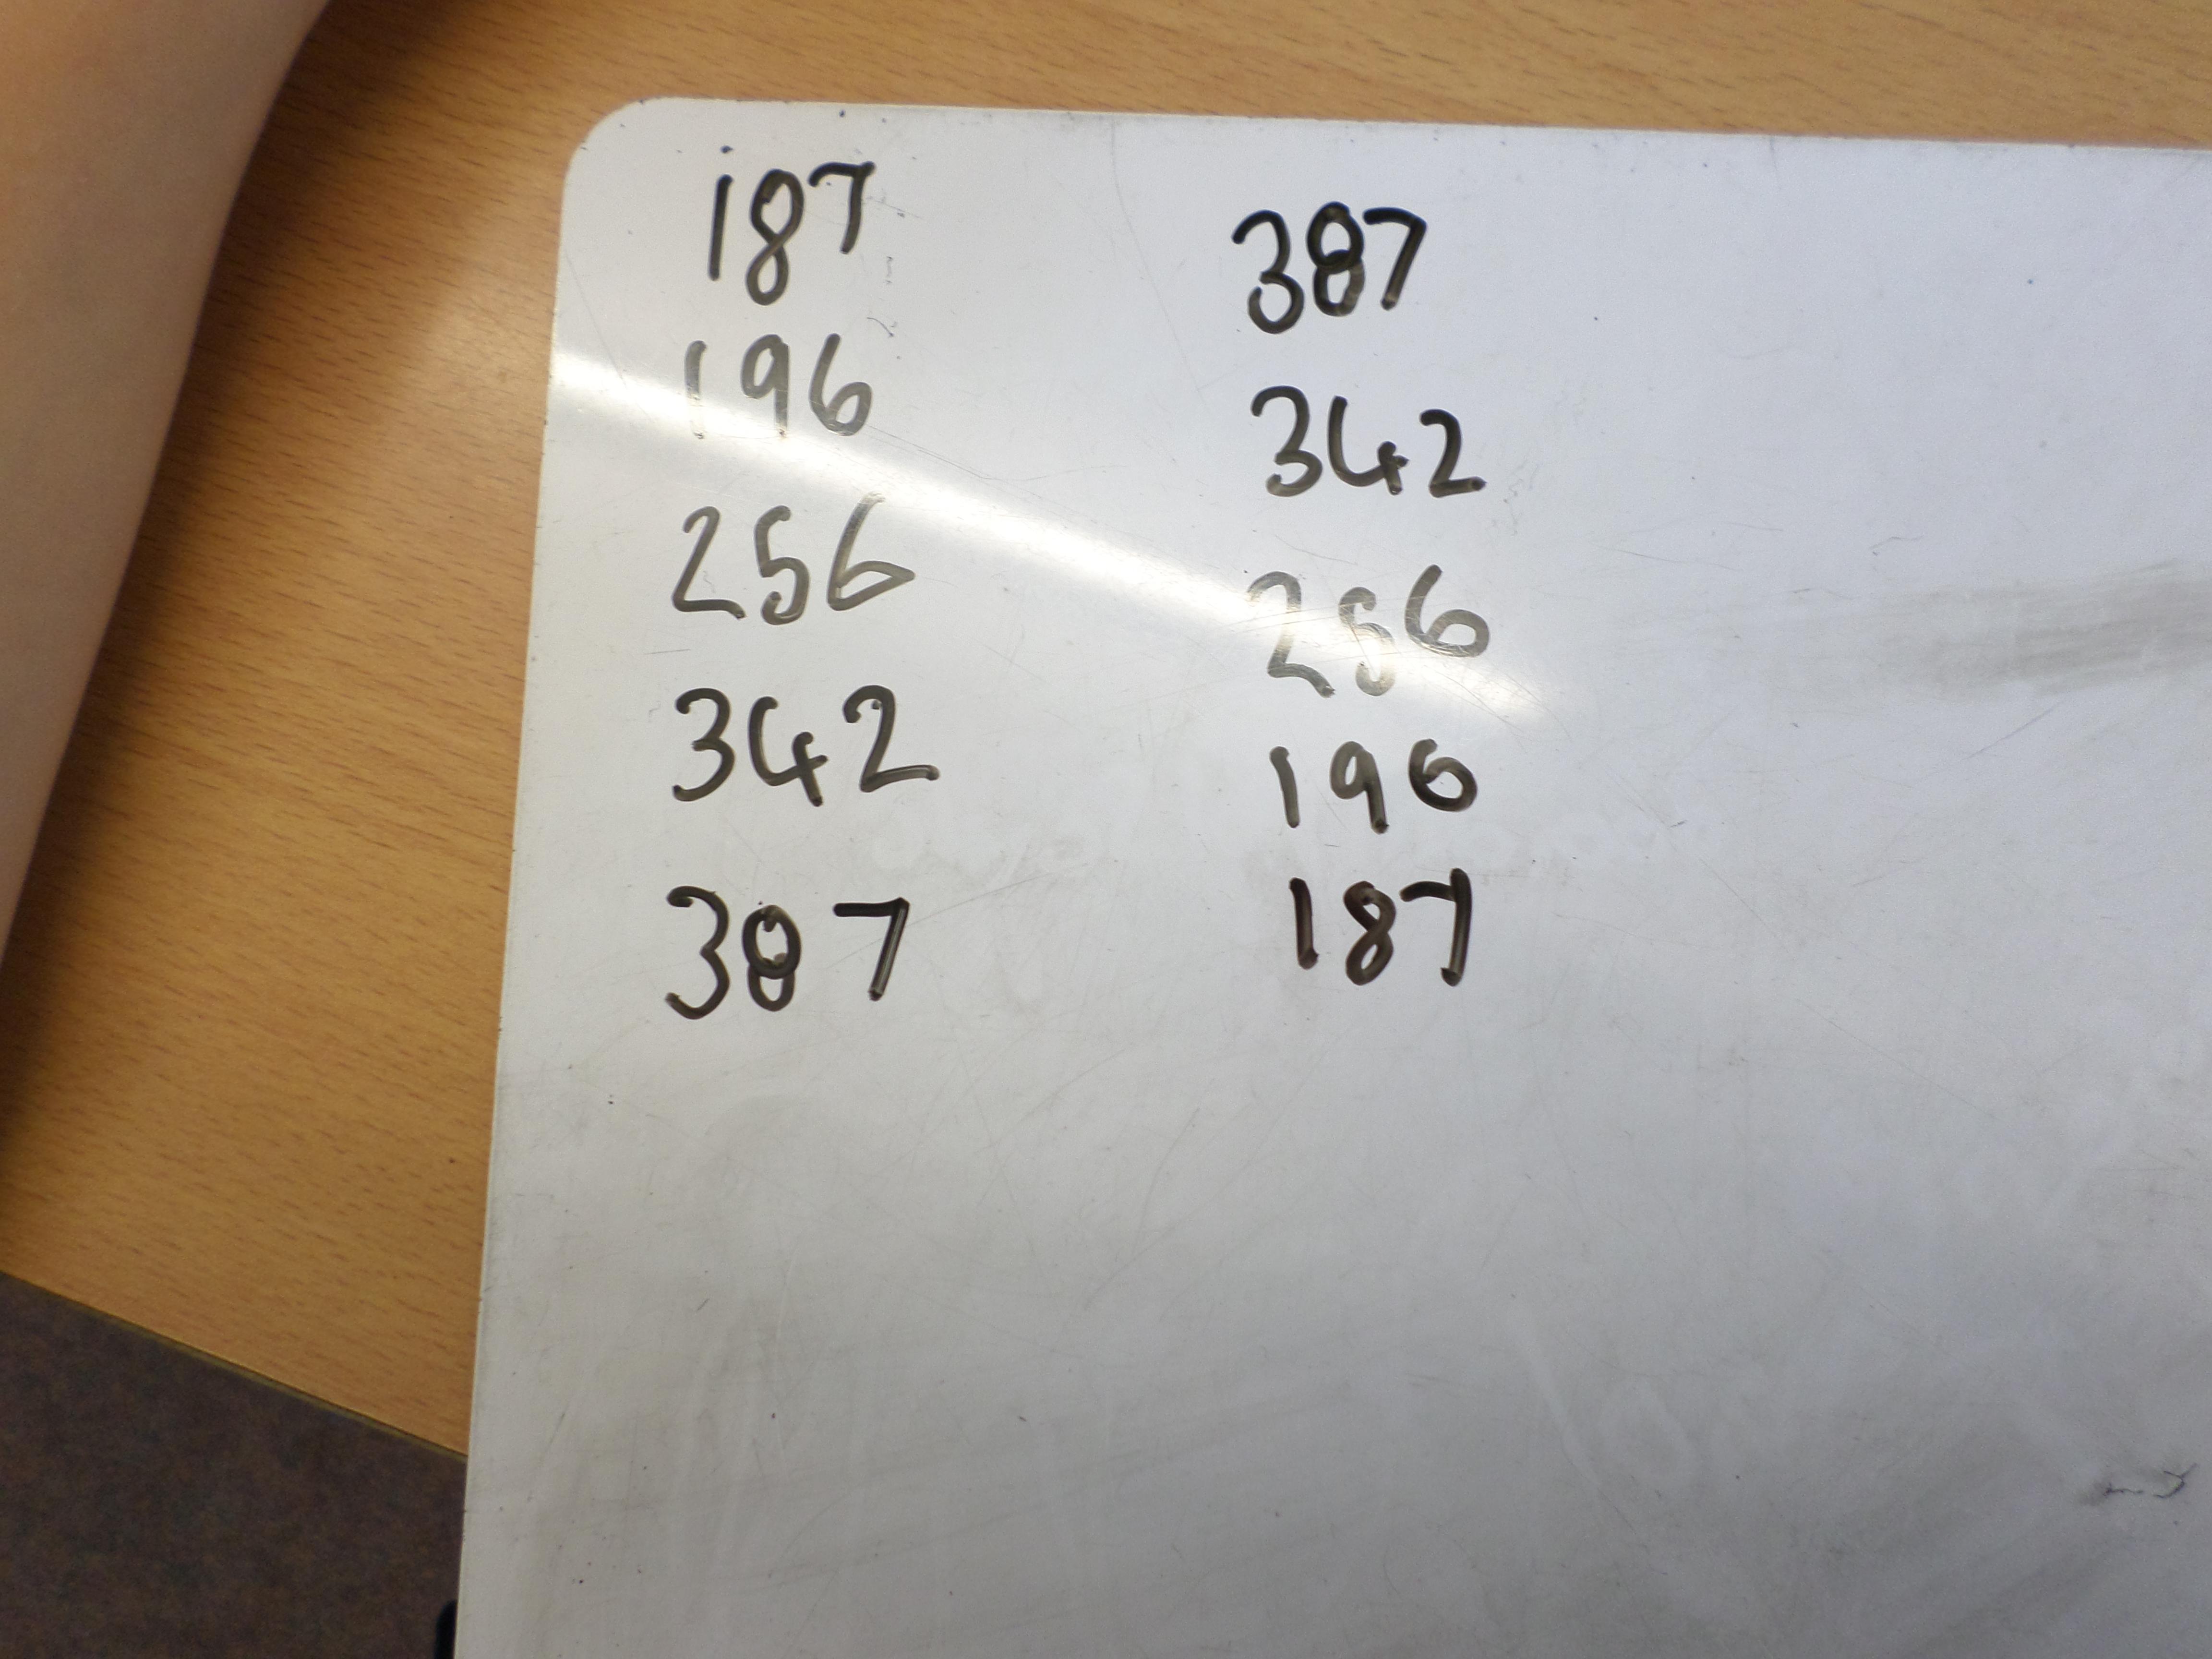 187
196
256
342
387
387
342
256
196
187